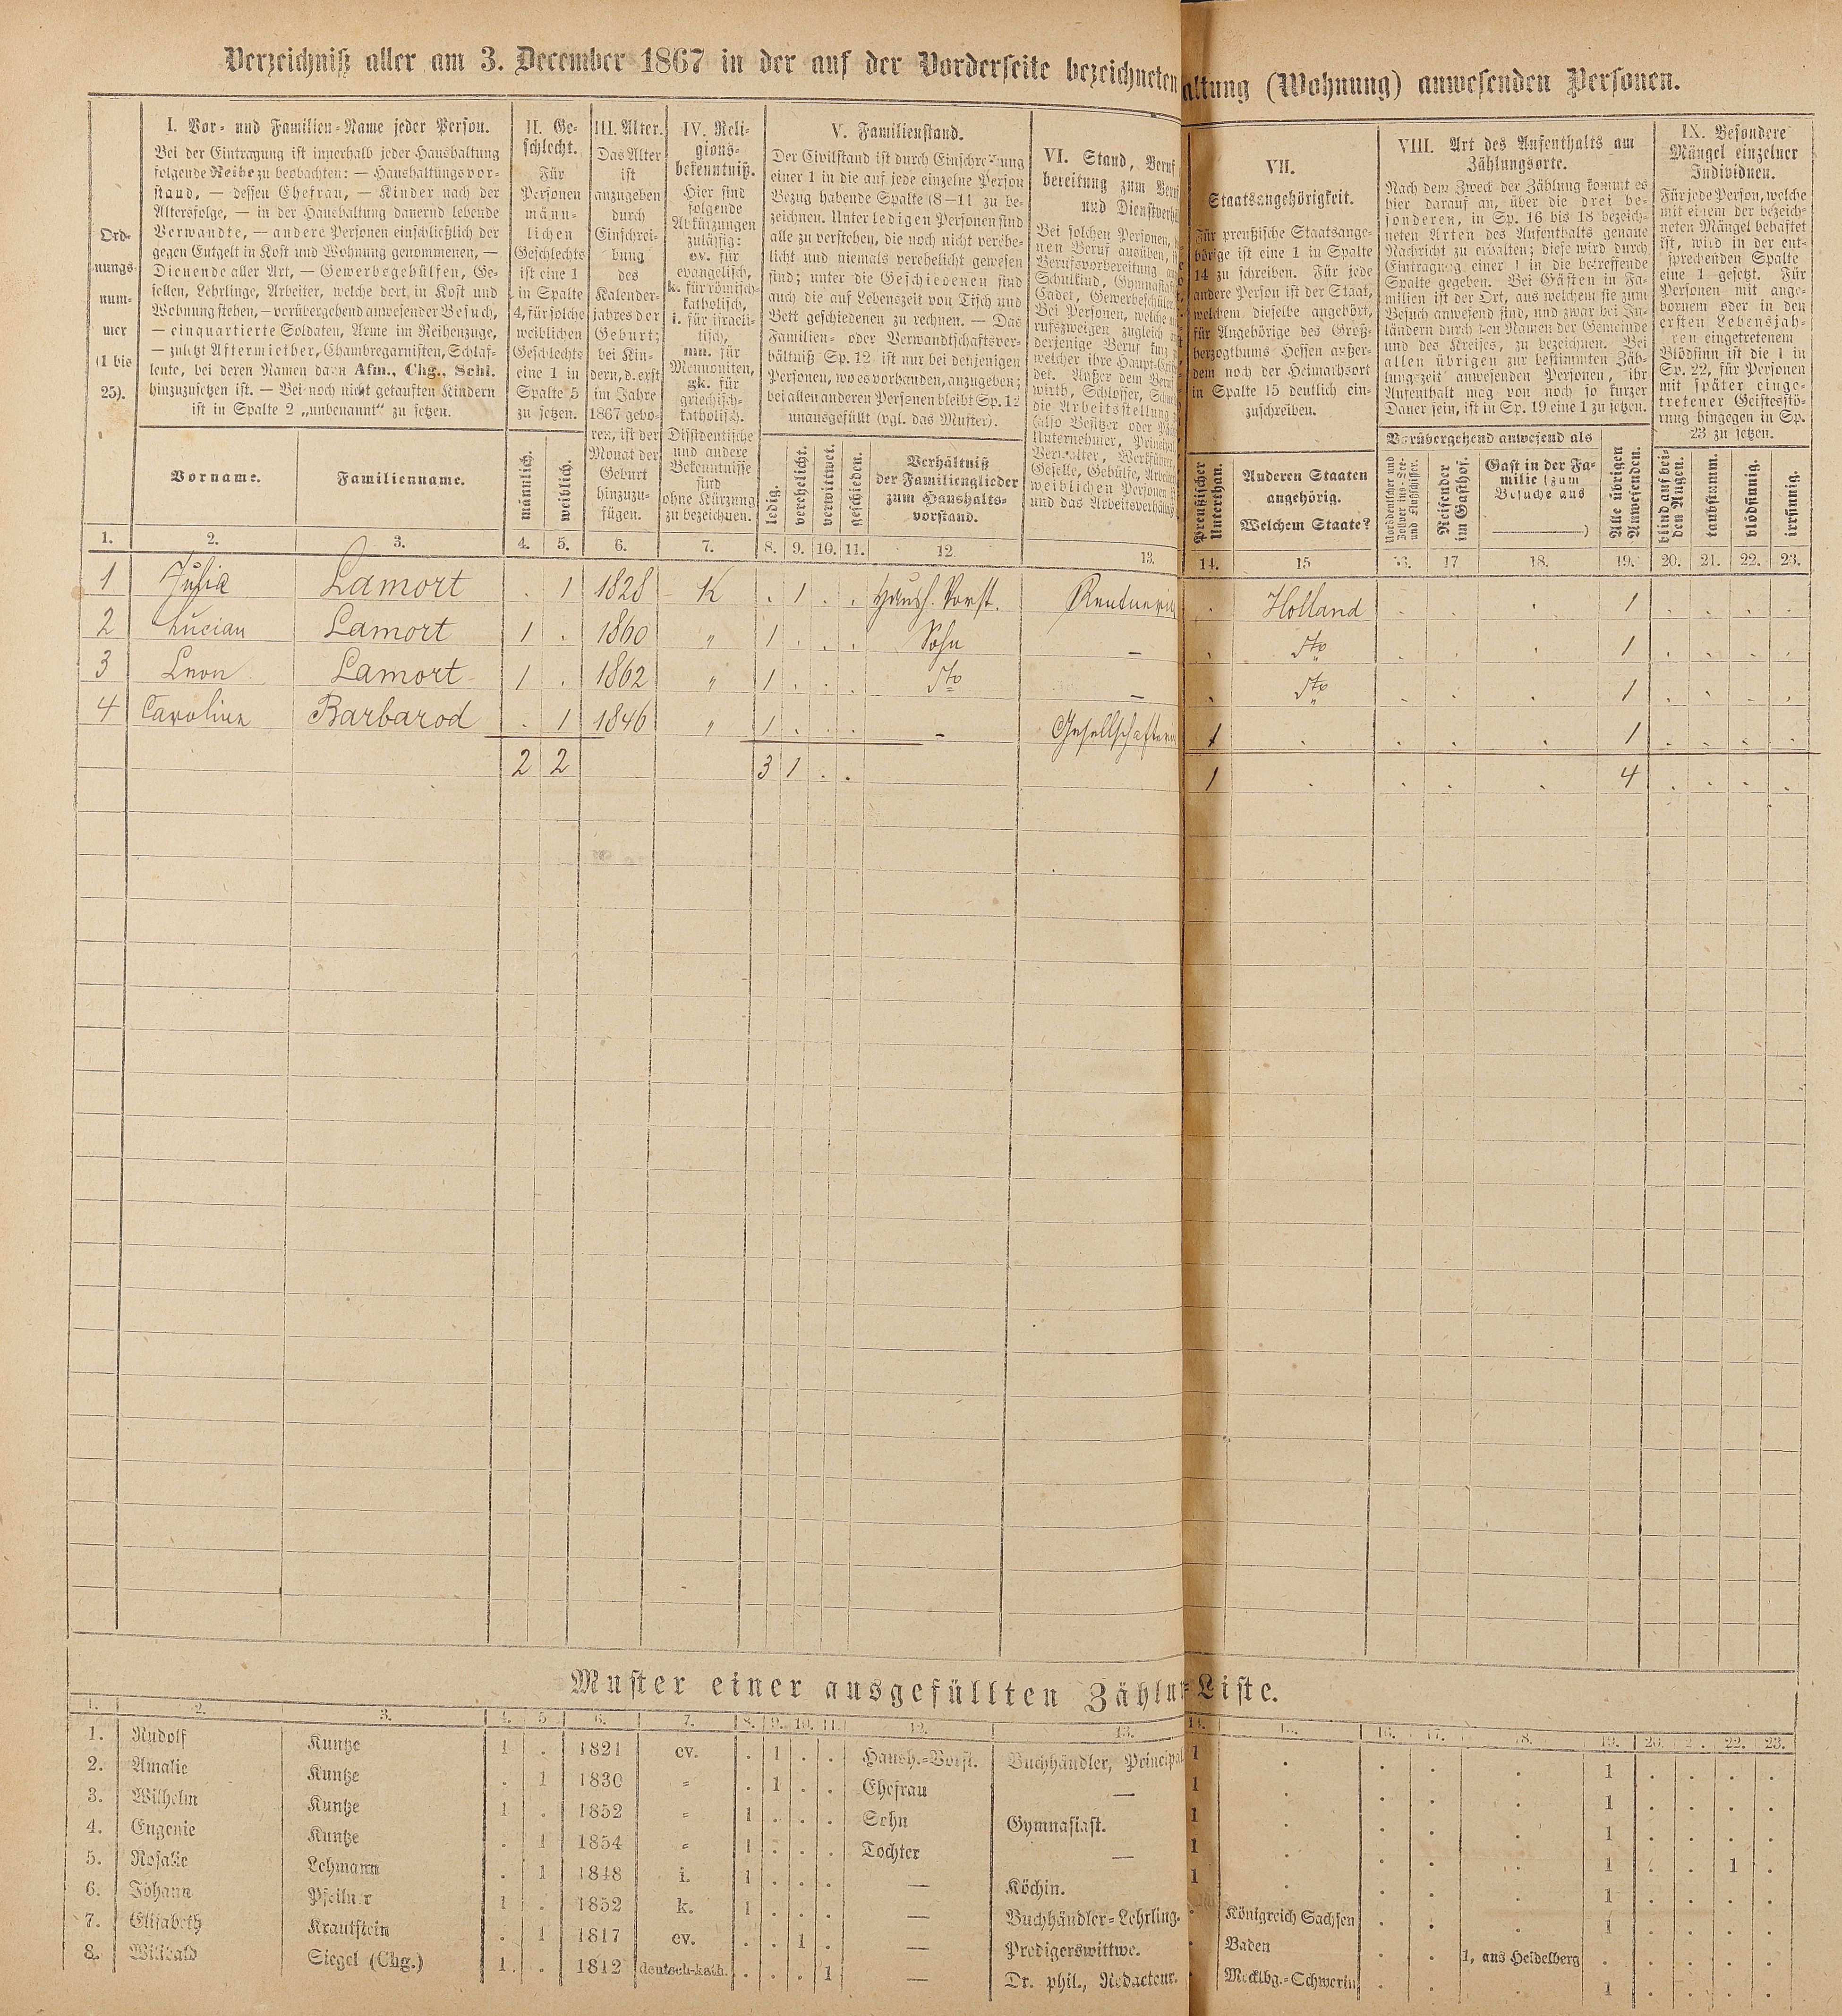 Verzeichniß aller am 3. December 1867 in der auf der Vorderseite bezeichneten altung (Wohnung) anwesenden Personen.
Ord-
nungs-
num-
mer
(1 bis
25).
I. Vor- und Familien-Name jeder Person.
Bei der Eintragung ist innerhalb jeder Haushaltung
folgende Reihe zu beobachten: — Haushaltungsvor-
stand, — dessen Ehefrau, — Kinder nach der
Altersfolge, — in der Haushaltung dauernd lebende
Verwandte, — andere Personen einschließlich der
gegen Entgelt in Kost und Wohnung genommenen, —
Dienende aller Art, — Gewerbsgehülfen, Ge-
sellen, Lehrlinge, Arbeiter, welche dort in Kost und
Wohnung stehen, — vorübergehend anwesender Besuch,
— einquartierte Soldaten, Arme im Reihenzuge,
— zuletzt Aftermiether, Chambregarnisten, Schlaf-
leute, bei deren Namen dann Afm., Chg., Schl.
hinzuzusetzen ist. — Bei noch nicht getauften Kindern
ist in Spalte 2 „unbenannt“ zu setzen.
Vorname.
Familienname.
II. Ge-
schlecht.
Für
Personen
männ-
lichen
Geschlechts
ist eine 1
in Spalte
4, für solche
weiblichen
Geschlechts
eine 1 in
Spalte 5
zu setzen.
männlich.
weiblich.
III. Alter.
Das Alter
ist
anzugeben
durch
Einschrei-
bung
des
Kalender-
jahres der
Geburt;
bei Kin-
dern, d. erst
im Jahre
1867 gebo-
ren, ist der
Monat der
Geburt
hinzuzu-
fügen.
IV. Reli-
gions-
bekenntniß.
Hier sind
folgende
Abkürzungen
zulässig:
ev. für
evangelisch,
k. für römisch-
katholisch,
i. für israeli-
tisch,
mn. für
Mennoniten,
gk. für
griechisch-
katholisch.
Dissidentische
und andere
Bekenntnisse
sind
ohne Kürzung
zu bezeichnen.
V. Familienstand.
Der Civilstand ist durch Einschreibung
einer 1 in die auf jede einzelne Person
Bezug habende Spalte (8—11 zu be-
zeichnen. Unter ledigen Personen sind
alle zu verstehen, die noch nicht verehe-
licht und niemals verehelicht gewesen
sind; unter die Geschiedenen sind
auch die auf Lebenszeit von Tisch und
Bett geschiedenen zu rechnen. — Das
Familien- oder Verwandtschaftsver-
hältniß Sp. 12 ist nur bei denjenigen
Personen, wo es vorhanden, anzugeben;
bei allen anderen Personen bleibt Sp. 12
unausgefüllt (vgl. das Muster).
ledig.
verehelicht.
verwittwet.
geschieden.
Verhältniß
der Familienglieder
zum Haushalts-
vorstand.
VI. Stand, Beruf
bereitung zum Beruf
und Dienstverhä
Bei solchen Personen,
nen Beruf ausüben,
Berufsvorbereitung
Schulkind, Gymnasiast
Cadet, Gewerbeschüler,
Bei Personen, welche
rufszweigen zugleich
derjenige Beruf
welcher ihre Haupt-
det. Außer dem Beruf
wirth, Schlosser,
die Arbeitsstellung
(also Besitzer oder
Unternehmer, Prinzipal,
Verwalter, Werkführer,
Geselle, Gehülfe, Arbeiter
weiblichen Personen
und das Arbeitsverhältniß
VII.
Staatsangehörigkeit.
Für preußische Staatsange-
hörige ist eine 1 in Spalte
14 zu schreiben. Für jede
andere Person ist der Staat,
welchem dieselbe angehört,
für Angehörige des Groß-
herzogthums Hessen außer-
dem noch der Heimathsort
in Spalte 15 deutlich ein-
zuschreiben.
Preußischer
Unterthan.
Anderen Staaten
angehörig.
Welchem Staate?
VIII. Art des Aufenthalts am
Zählungsorte.
Nach dem Zweck der Zählung kommt es
hier darauf an, über die drei be-
sonderen, in Sp. 16 bis 18 bezeich-
neten Arten des Aufenthalts genaue
Nachricht zu erhalten; diese wird durch
Eintragung einer 1 in die betreffende
Spalte gegeben. Bei Gästen in Fa-
milien ist der Ort, aus welchem sie zum
Besuch anwesend sind, und zwar bei In-
ländern durch den Namen der Gemeinde
und des Kreises, zu bezeichnen. Bei
allen übrigen zur bestimmten Zäh-
lungszeit anwesenden Personen, ihr
Aufenthalt mag von noch so kurzer
Dauer sein, ist in Sp. 19 eine 1 zu setzen.
Vorübergehend anwesend als
Norddeutscher und
Zollver.ins-See-
und Flußschiffer.
Reisender
im Gasthof.
Gast in der Fa-
milie (zum
Besuche aus
)
Alle übrigen
Anwesenden.
IX. Besondere
Mängel einzelner
Individuen.
Für jede Person, welche
mit einem der bezeich-
neten Mängel behaftet
ist, wird in der ent-
sprechenden Spalte
eine 1 gesetzt. Für
Personen mit ange-
bornem oder in den
ersten Lebensjah-
ren eingetretenem
Blödsinn ist die 1 in
Sp. 22, für Personen
mit später einge-
tretener Geistesstö-
rung hingegen in Sp.
23 zu setzen.
blind auf bei-
den Augen.
taubstumm.
blödsinnig.
irrsinnig.
1. 2. 3. 4. 5. 6. 7. 8. 9. 10. 11. 12. 13. 14. 15 16. 17 18. 19. 20. 21. 22. 23.
1 Julia Lamort . 1 1828 K . 1 . . Haush. Vorst. Rentnerin . Holland . . . 1 . . . .
2 Lucian Lamort 1 . 1860 " 1 . . . Sohn — . dto . . . 1 . . . .
3 Leon Lamort 1 . 1862 " 1 . . . dto — . dto . . . 1 . . . .
4 Caroline Barbarod . 1 1846 " 1 . . . — Gesellschafterin 1 . . . . 1 . . . .
2 2 3 1 . . 1 . . . . 4 . . . .
Muster einer ausgefüllten Zählu Liste.
1. 2. 3. 4. 5. 6. 7. 8. 9. 10. 11. 12. 13. 14. 15. 16. 17. 18. 19. 20. 21. 22. 23.
1. Rudolf Kuntze 1 . 1821 ev. . 1 . . Haush.-Vorst. Buchhändler, Principal 1 . . . . 1 . . . .
2. Amalie Kuntze . 1 1830 = . 1 . . Ehefrau — 1 . . . . 1 . . . .
3. Wilhelm Kuntze 1 . 1852 = 1 . . . Sohn Gymnasiast. 1 . . . . 1 . . . .
4. Eugenie Kuntze . 1 1854 = 1 . . . Tochter — 1 . . . . 1 . . 1 .
5. Rosalie Lehmann . 1 1848 i. 1 . . . — Köchin. 1 . . . . 1 . . . .
6. Johann Pfeilner 1 . 1852 k. 1 . . . — Buchhändler-Lehrling. . Königreich Sachsen . . . 1 . . . .
7. Elisabeth Krautstein . 1 1817 ev. . . 1 . — Predigerswittwe. . Baden . . 1, aus Heidelberg . . . . .
8. Wilibald Siegel (Chg.) 1. . 1812 deutsch-kath. . . . 1 — Dr. phil., Redacteur. . Mecklbg.-Schwerin . . . 1 . . . .